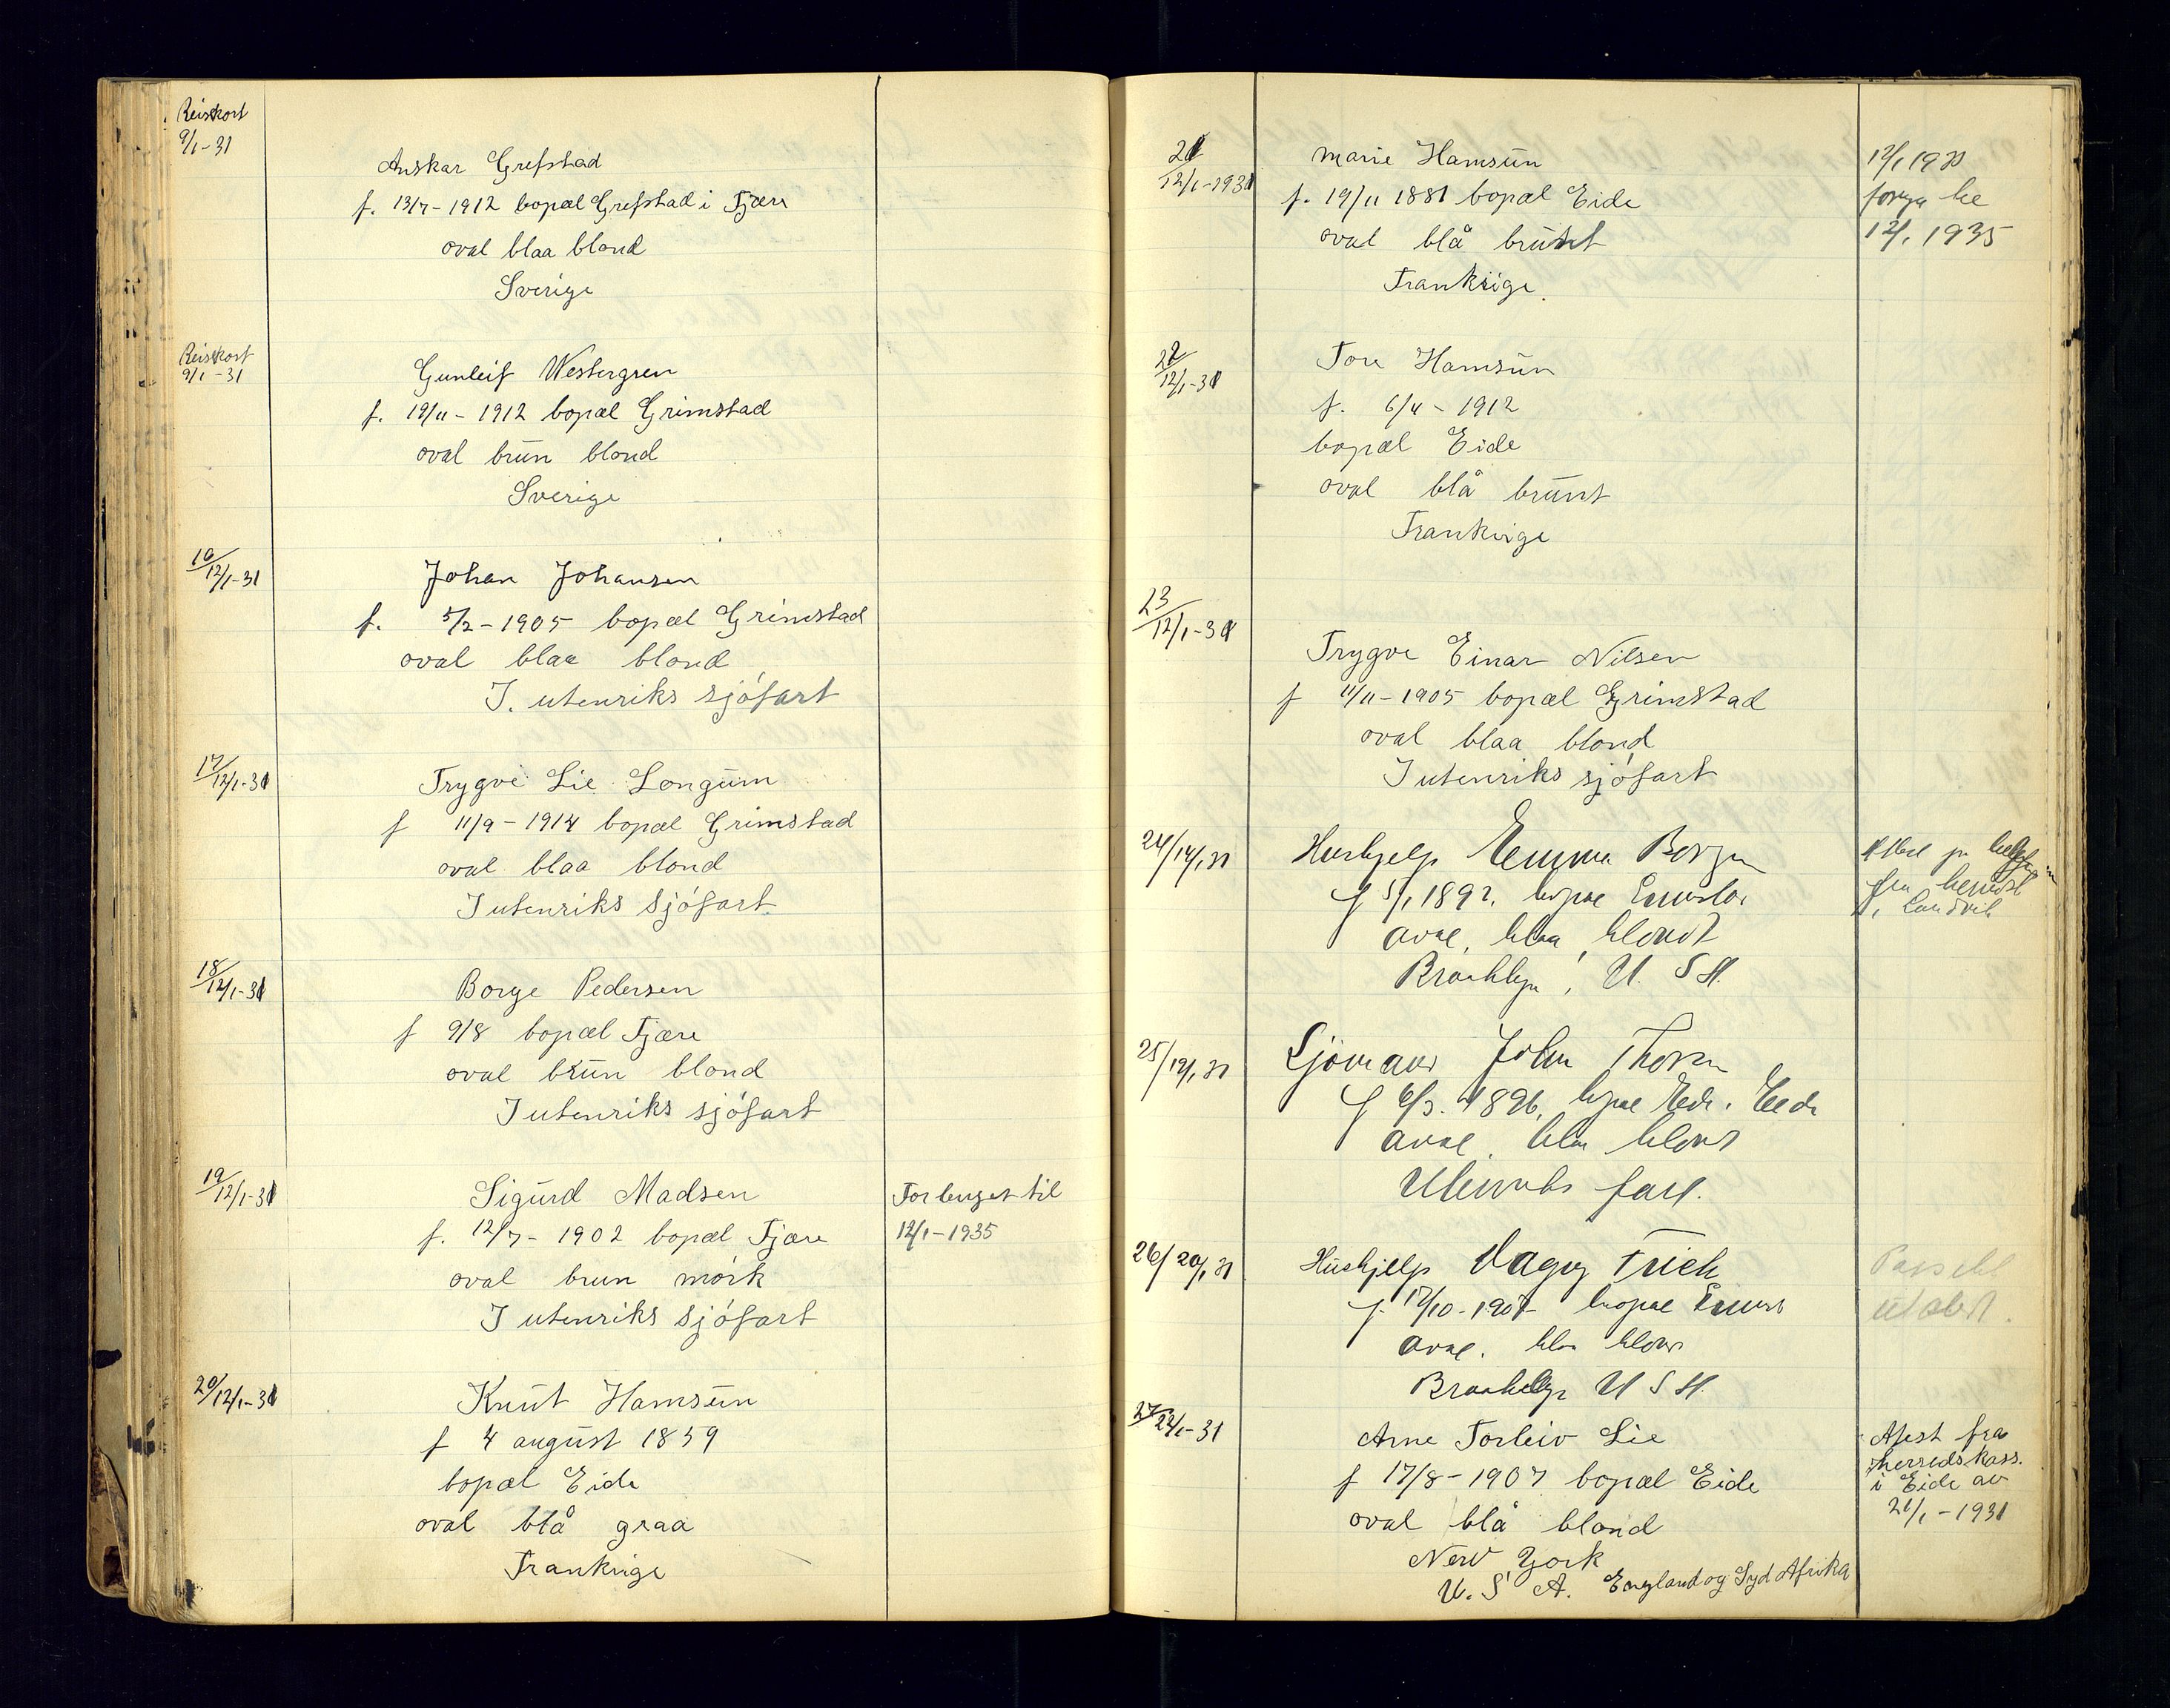 Reisekort
9/1-31
Anskar Grefstad
f. 13/7-1912 bopæl Grefstad i Fjære
oval blaa blond
Sverige
Reisekort
9/1-31
Gunleif Westergren
f. 19/11-1912 bopæl Grimstad
oval brun blond
Sverige
16/12/1-31
Johan Johansen
f. 5/2-1905 bopæl Grimstad
oval blaa blond
I. utenriks sjófart
17/12/1-31
Trygve Lie Longum
f 11/9-1914 bopæl Grimstad
oval blaa blond
I utenriks sjófart
18/12/1-31
Borge Pedersen
f 9/8 bopæl Fjære
oval brun blond
I utenriks sjófart
19/12/1-31
Sigurd Madsen
f. 12/7-1902 bopæl Fjære
oval brun mórk
I utenriks sjófart
Forlenget til
12/1-1935
20/12/1-31
Knut Hamsun
f 4 august 1859
bopæl Eide
oval blå graa
Frankrige
21
12/1-1931
Marie Hamsun
f. 19/11 1881 bopæl Eide
oval blå brunt
Frankrige.
12/1 1935
22
12/1-31
Tore Hamsun
f. 6/4-1912
bopæl Eide
oval blå brunt
Frankrige
23
12/1-31
Trygve Einar Nilsen
f 11/11-1905 bopæl Grimstad
oval blaa blond
I utenriks sjófart
24/14/1 31
Hushjelp Emma
f 5/1 1892. bopæl
oval, blaa blondt
Brooklyn, U. S A.
fra
i Landvik
25/19/1 31
Sjömann John
f 6/3. 1896, bopæl Eide. Eide
oval. blaa blond
Utenriks fart.
26/20/1 31
Hushjelp Dagny
f. 17/10-1907 bopæl
oval. blaa blond
Brooklyn U S A.
Pass
utstedt.
27/22/1-31
Arne Torleiv Lie
f 17/8-1907 bopæl Eide
oval blå blond
New York
U. S A. England og Syd Afrika
Atest fra
herredskass.
i Eide av
21/1-1931